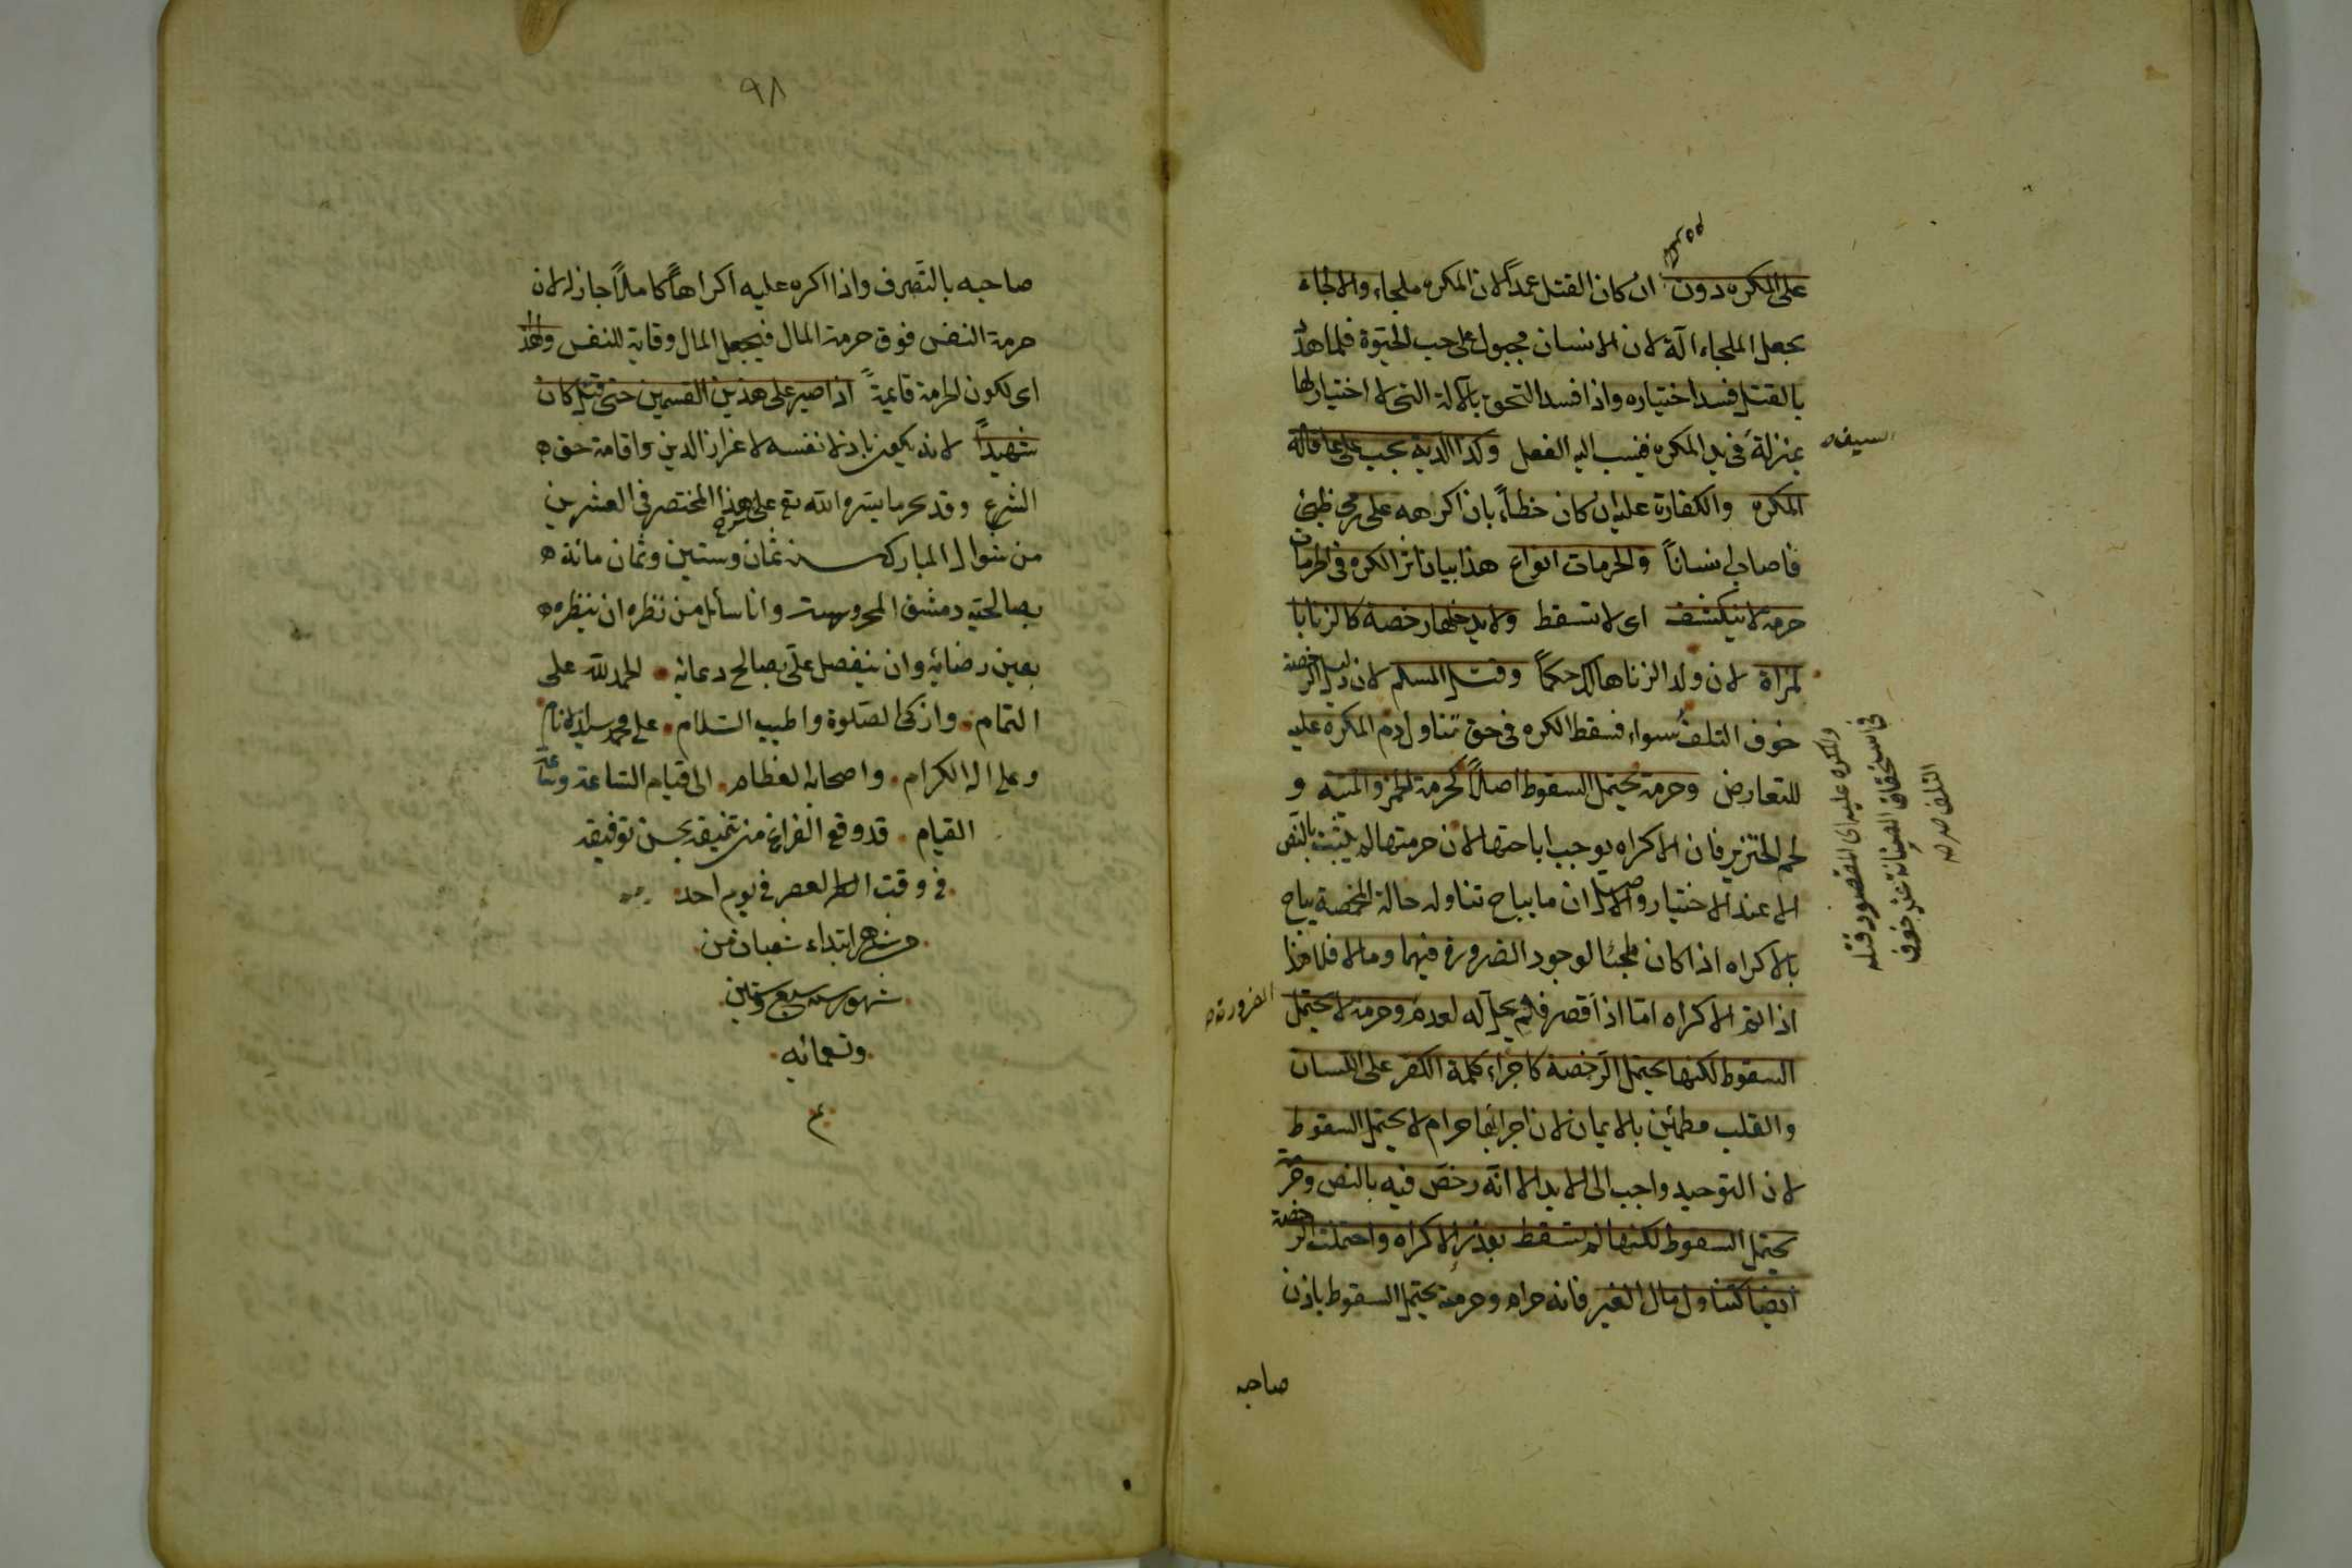 على المكره دون ان كان القتل عمداً لان المكره ملجاء والالجاء
يجعل الملجاء آلة لان الانسان مجبول على حب الحيوة فلما هدد
بالقتل فسد اختياره واذا فسد التحق بالآلة التى لا اختيار لها
السيف
بمنزلة فى يد المكره فينسب اليه الفعل وكذا الدية يجب على عاقلة
المكره والكفارة عليه ان كان خطاءً بان اكرهه على رمى ظبى
فاصاب انساناً والحرمات انواع هذا بيان اثر الكره فى الحرمات
حرمة لا ينكشف اى لا تسقط ولا يدخلها رخصة كالزنا با
لمراة لان ولد الزنا هالك حكماً وقتل المسلم لان دليل الرخصة
خوف التلف سواء فسقط الكره فى حق تناول دم المكره عليه
والمكره عليه اى المقصود قتله
فى استحقاق الصيانة عند خوف
التلف
للتعارض وحرمة يحتمل السقوط اصلاً كحرمة الخمر والميتة و
لحم الخنزير فان الاكراه يوجب اباحتها لان حرمتها لم يثبت بالنص
الا عند الاختيار والاصل ان ما يباح تناوله حالة المخمصة يباح
بالاكراه اذا كان ملجئا لوجود الضرورة فيهما وما لا فلا هذا
اذا تم الاكراه امّا اذا قصر فلم يحل له لعدم وحرمة لا يحتمل
الضرورة
السقوط لكنها يحتمل الرخصة كاجراء كلمة الكفر على اللسان
والقلب مطمئن بالايمان لان اجرائها حرام لا يحتمل السقوط
لان التوحيد واجب الى الابد الا انّه رخّص فيه بالنص وحرمة
يحتمل السقوط لكنها لم تسقط بعذر الاكراه واحتملت الرخصة
ايضا كتناول مال الغير فانه حرام وحرمته يحتمل السقوط باذن
صاحبه
٩٨
صاحبه بالتصرف واذا اكره عليه اكراهاً كاملاً جاز له لان
حرمة النفس فوق حرمة المال فيجعل المال وقاية للنفس ولهذا
اى لكون الحرمة قائمةً اذا صبر على هذين القسمين حتى قتل كان
شهيداً لانه يكون باذلا نفسه لاعزاز الدين واقامة حق
الشرع وقد تحرر ما يسره الله تع على هذا المختصر فى العشرين
من شوال المبارك سنة ثمان وستين وثمان مائة
بصالحية دمشق المحروسة وانا سائل من نظره ان ينظره
بعين رضائه وان يتفضل علّى بصالح دعائه الحمد لله على
التمام وازكى الصّلوة واطيب السّلام على محمد سيد الانام
وعلى اله الكرام واصحابه العظام الى قيام السّاعة وساعة
القيام قد وقع الفراغ من تنميقه بحسن توفيقه
فى وقت العصر فى يوم احد
ابتداء شعبان من
شهور سنه سبع وستين
وتسعمائه
م